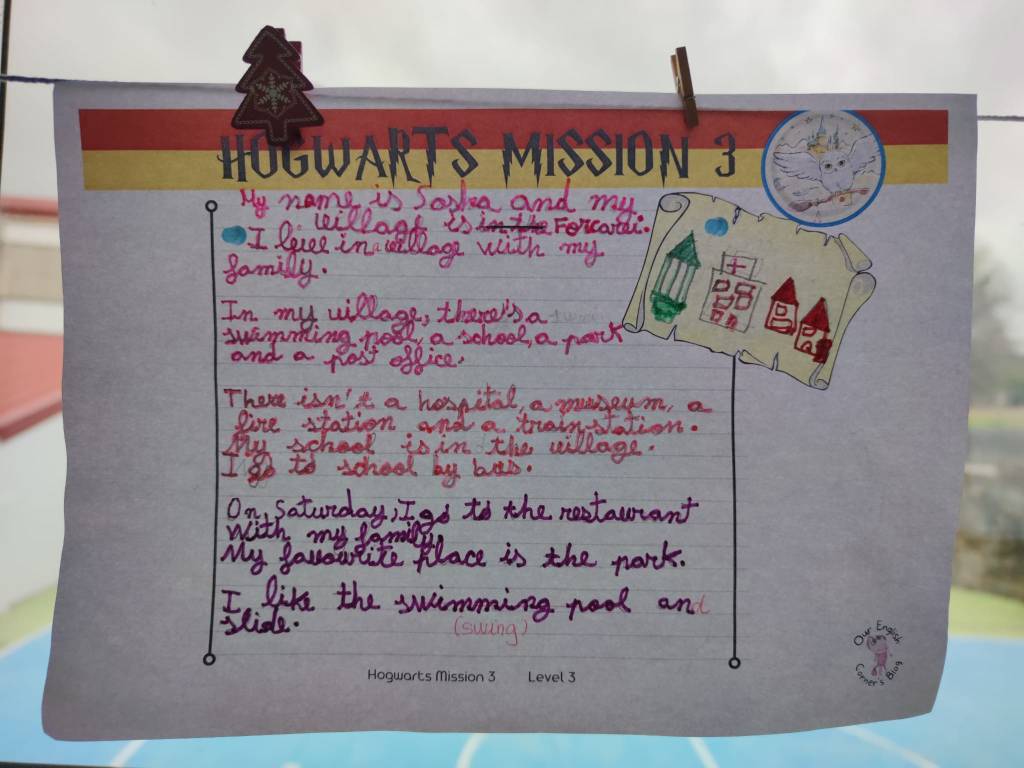 HOGWARTS MISSION 3
My name is Saska and my
village is in the Forcarei.
I live in a village with my
family.
In my village, there's a
swimming pool, a school, a park
and a post office.
There isn't a hospital, a museum, a
fire station and a train station.
My school is in the village.
I go to school by bus.
On Saturday, I go to the restaurant
With my family.
My favourite place is the park.
I like the swimming pool and
slide. (swing)
Hogwarts Mission 3 Level 3
Our English
Corner's Blog